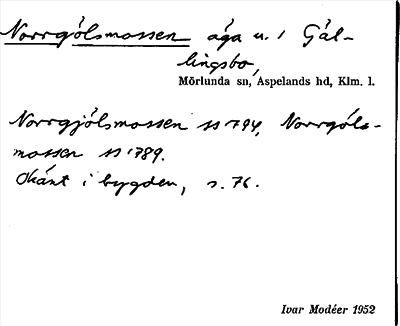 Norrgölsmossen äga u. / Gäl-
lingsbo,
Mörlunda sn, Aspelands hd, Klm. l.
Norrgjölsmossen ss 794, Norrgöls-
mossen ss 789.
Okänt i bygden, s. 76.
Ivar Modéer 1952